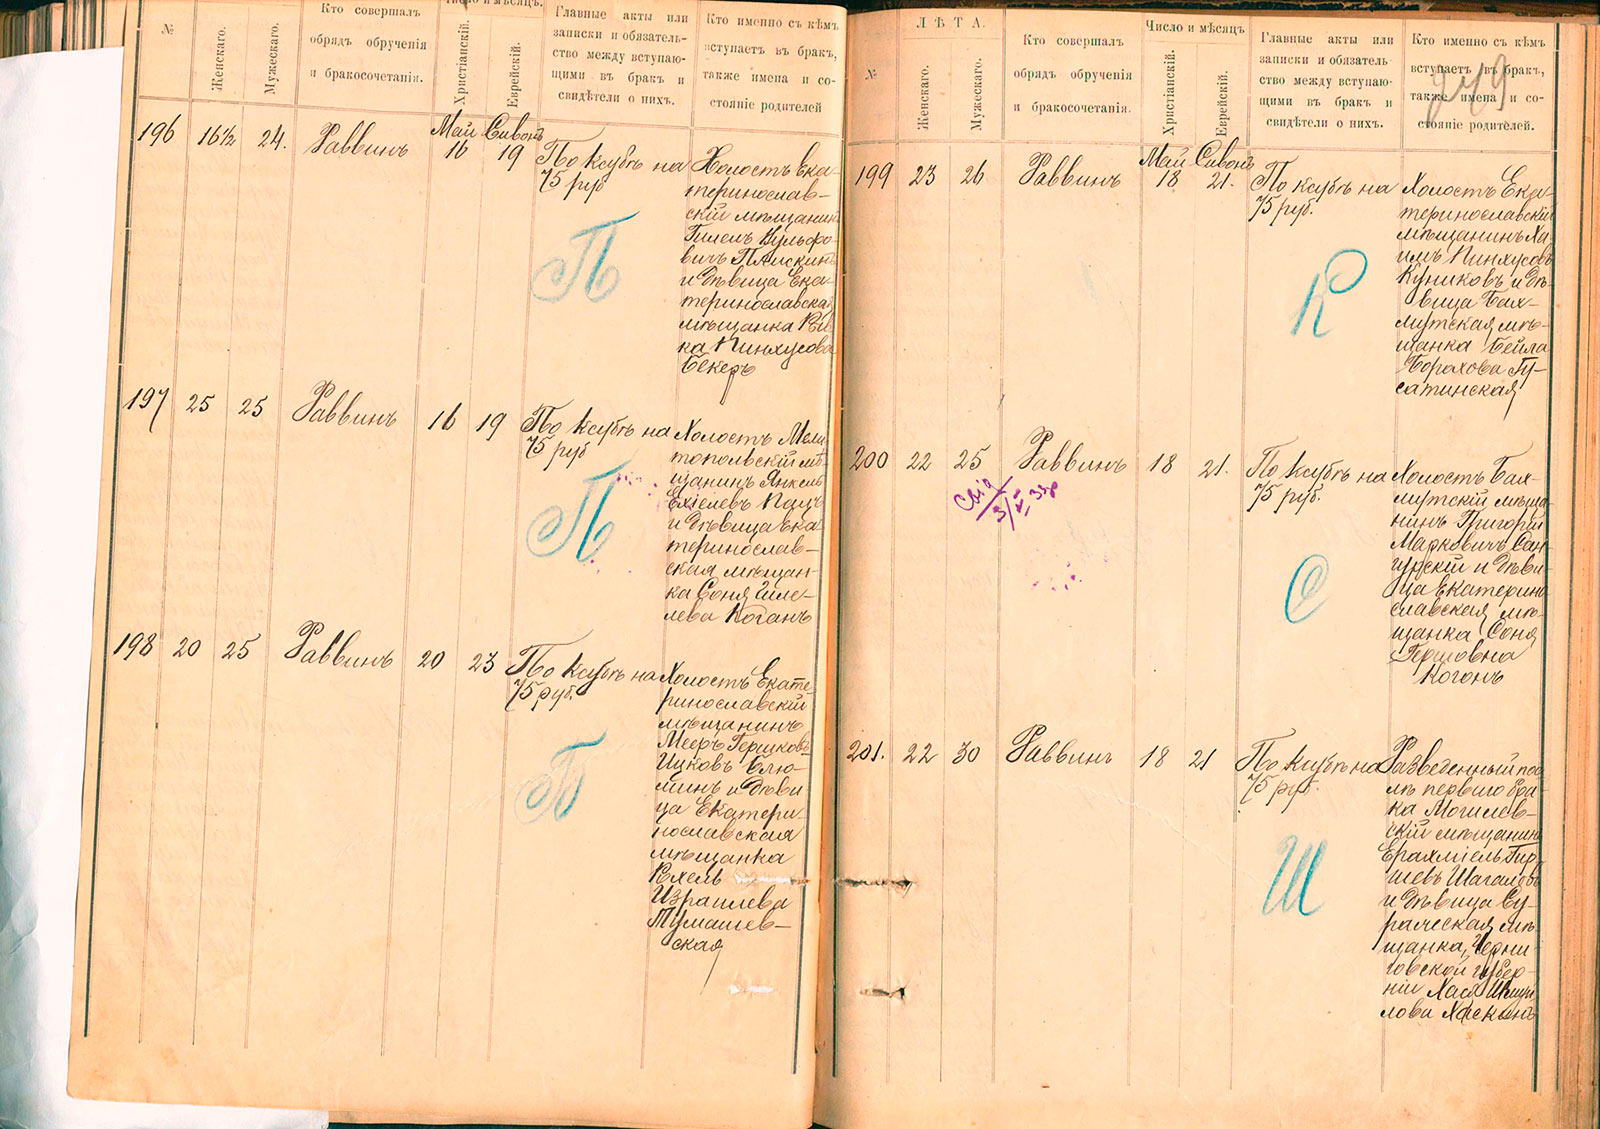 №
Женскаго.
Мужескаго.
Кто совершалъ
обрядъ обрученія
и бракосочетанія.
Число и мѣсяцъ.
Христіанскій.
Еврейскій.
Главные акты или
записки и обязатель-
ство между вступаю-
щими въ бракъ и
свидѣтели о нихъ.
Кто именно съ кѣмъ
вступаетъ въ бракъ,
также имена и со-
стояніе родителей
196 16½ 24. Раввинъ Май 16 Сивонъ 19
По ксубѣ на
75 руб
П
Холостъ Ека-
теринослав-
скій мѣщанинъ
Гилель Вульфо-
вичъ
и дѣвица Ека-
теринославская
мѣщанка Рив-
ка Пинхусова
Бекеръ
197 25 25 Раввинъ 16 19
По ксубѣ на
75 руб
П
Холостъ Мели-
топольскій мѣ-
щанинъ Янкель
Ехіелевъ
и дѣвица Ека
теринослав-
ская мѣщан-
ка Соня
лева Коганъ
198 20 25 Раввинъ 20 23
По ксубѣ на
75 руб.
Б
Холостъ Екате-
ринославскій
мѣщанинъ
Мееръ Гершковъ
Ицковъ Блю-
минъ и дѣви
ца Екатери-
нославская
мѣщанка
Рхель
Израилева
Тумашев-
ская
№
ЛѢТА.
Женскаго.
Мужескаго.
Кто совершалъ
обрядъ обрученія
и бракосочетанія.
Число и мѣсяцъ
Христіанскій.
Еврейскій.
Главные акты или
записки и обязатель-
ство между вступаю-
щими въ бракъ и
свидѣтели о нихъ.
Кто именно съ кѣмъ
вступаетъ въ бракъ,
также имена и со-
стояніе родителей.
249
199 23 26 Раввинъ Май 18 Сивонъ 21.
По ксубѣ на
75 руб.
К
Холостъ Ека-
теринославскій
мѣщанинъ Ха-
имъ Пинхусовъ
Куниковъ и дѣ-
вица Бах-
мутская мѣ-
щанка Бейла
Борахова Пу-
сатинская
200 22 25 Раввинъ 18 21.
По ксубѣ на
75 руб.
С
Холостъ Бах-
мутскій мѣща
нинъ Григорій
Марковичъ Сан-
гурскій и дѣви-
ца Екатерино
славская мѣ-
щанка Соня
Гершовна
Когонъ
201. 22 30 Раввинъ 18 21
По ксубѣ на
75 руб.
Ш
Разведенный пос-
лѣ перваго бра-
ка Могилев-
скій мѣщанинъ
Ерахміель Гир-
шевъ Шагаловъ
и дѣвица Су-
ражская мѣ
щанка, Черни
говской губер-
ніи Хася Шмуи
лова Хаскинъ